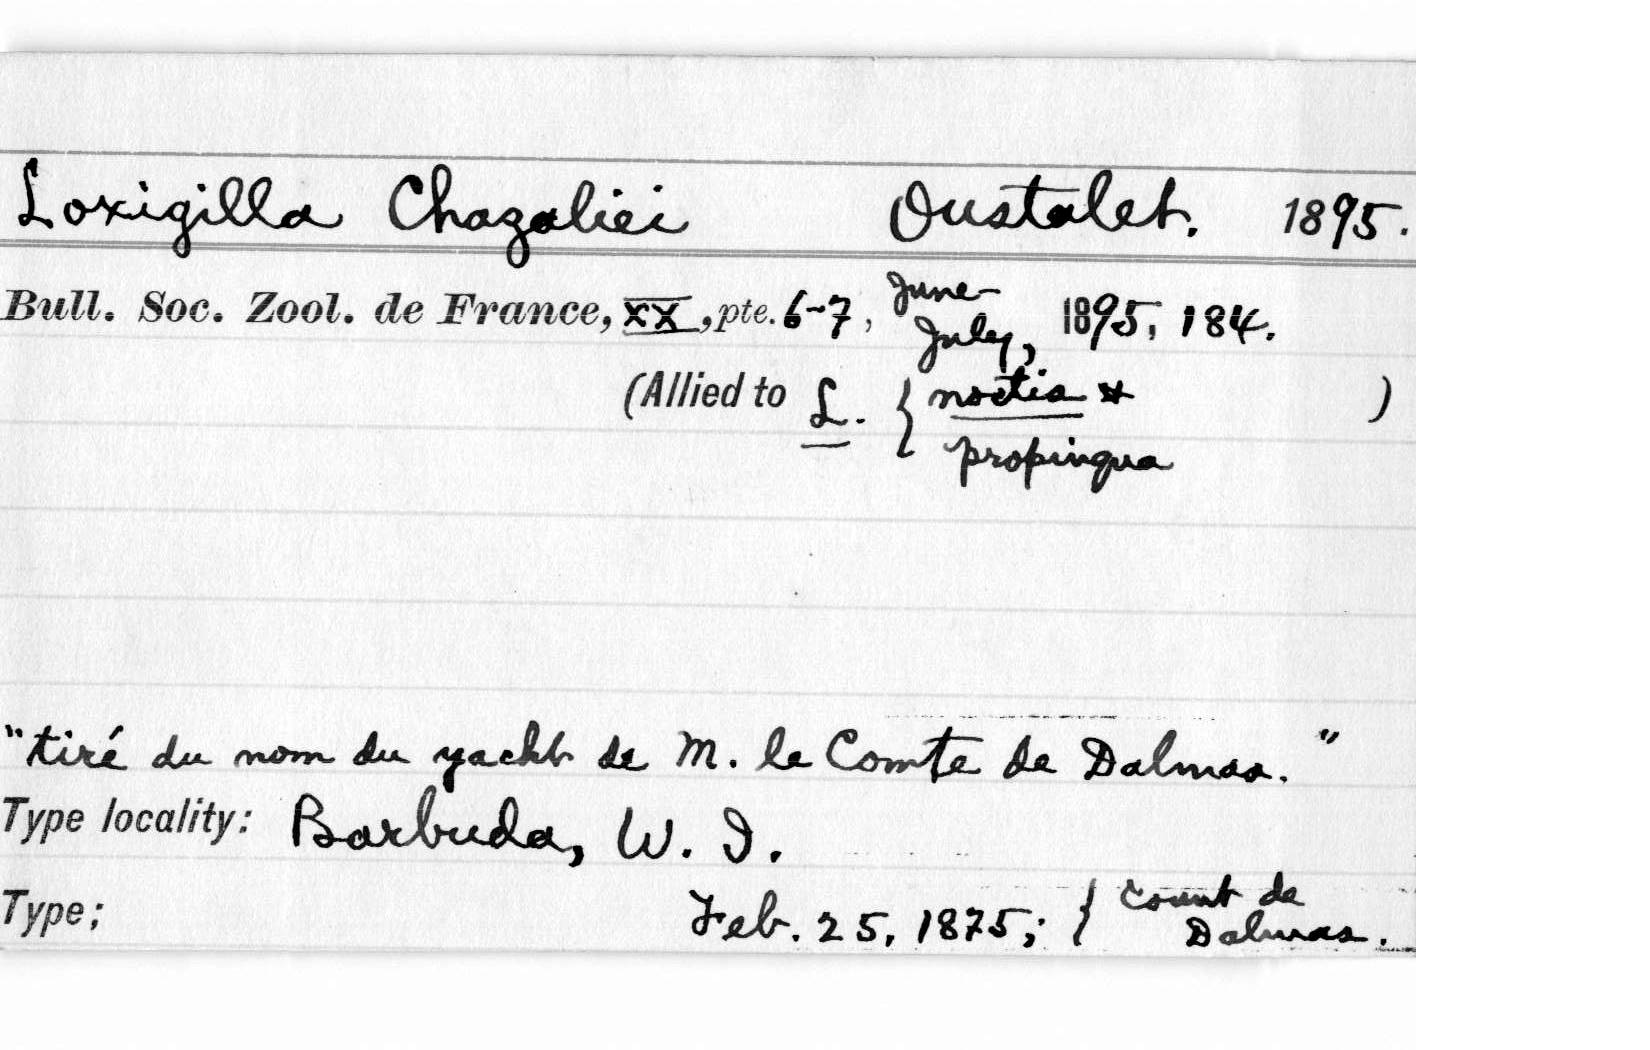 Loxigilla Chazaliei Oustalet. 1895.
Bull. Soc. Zool. de France, XX, pte. 6-7, June-July, 1895, 184.
(Allied to L. { noctis & propinqua )
"tiré du nom du yacht de M. le Comte de Dalmas."
Type locality: Barbuda, W. I.
Type; Feb. 25, 1875; { Count de Dalmas.